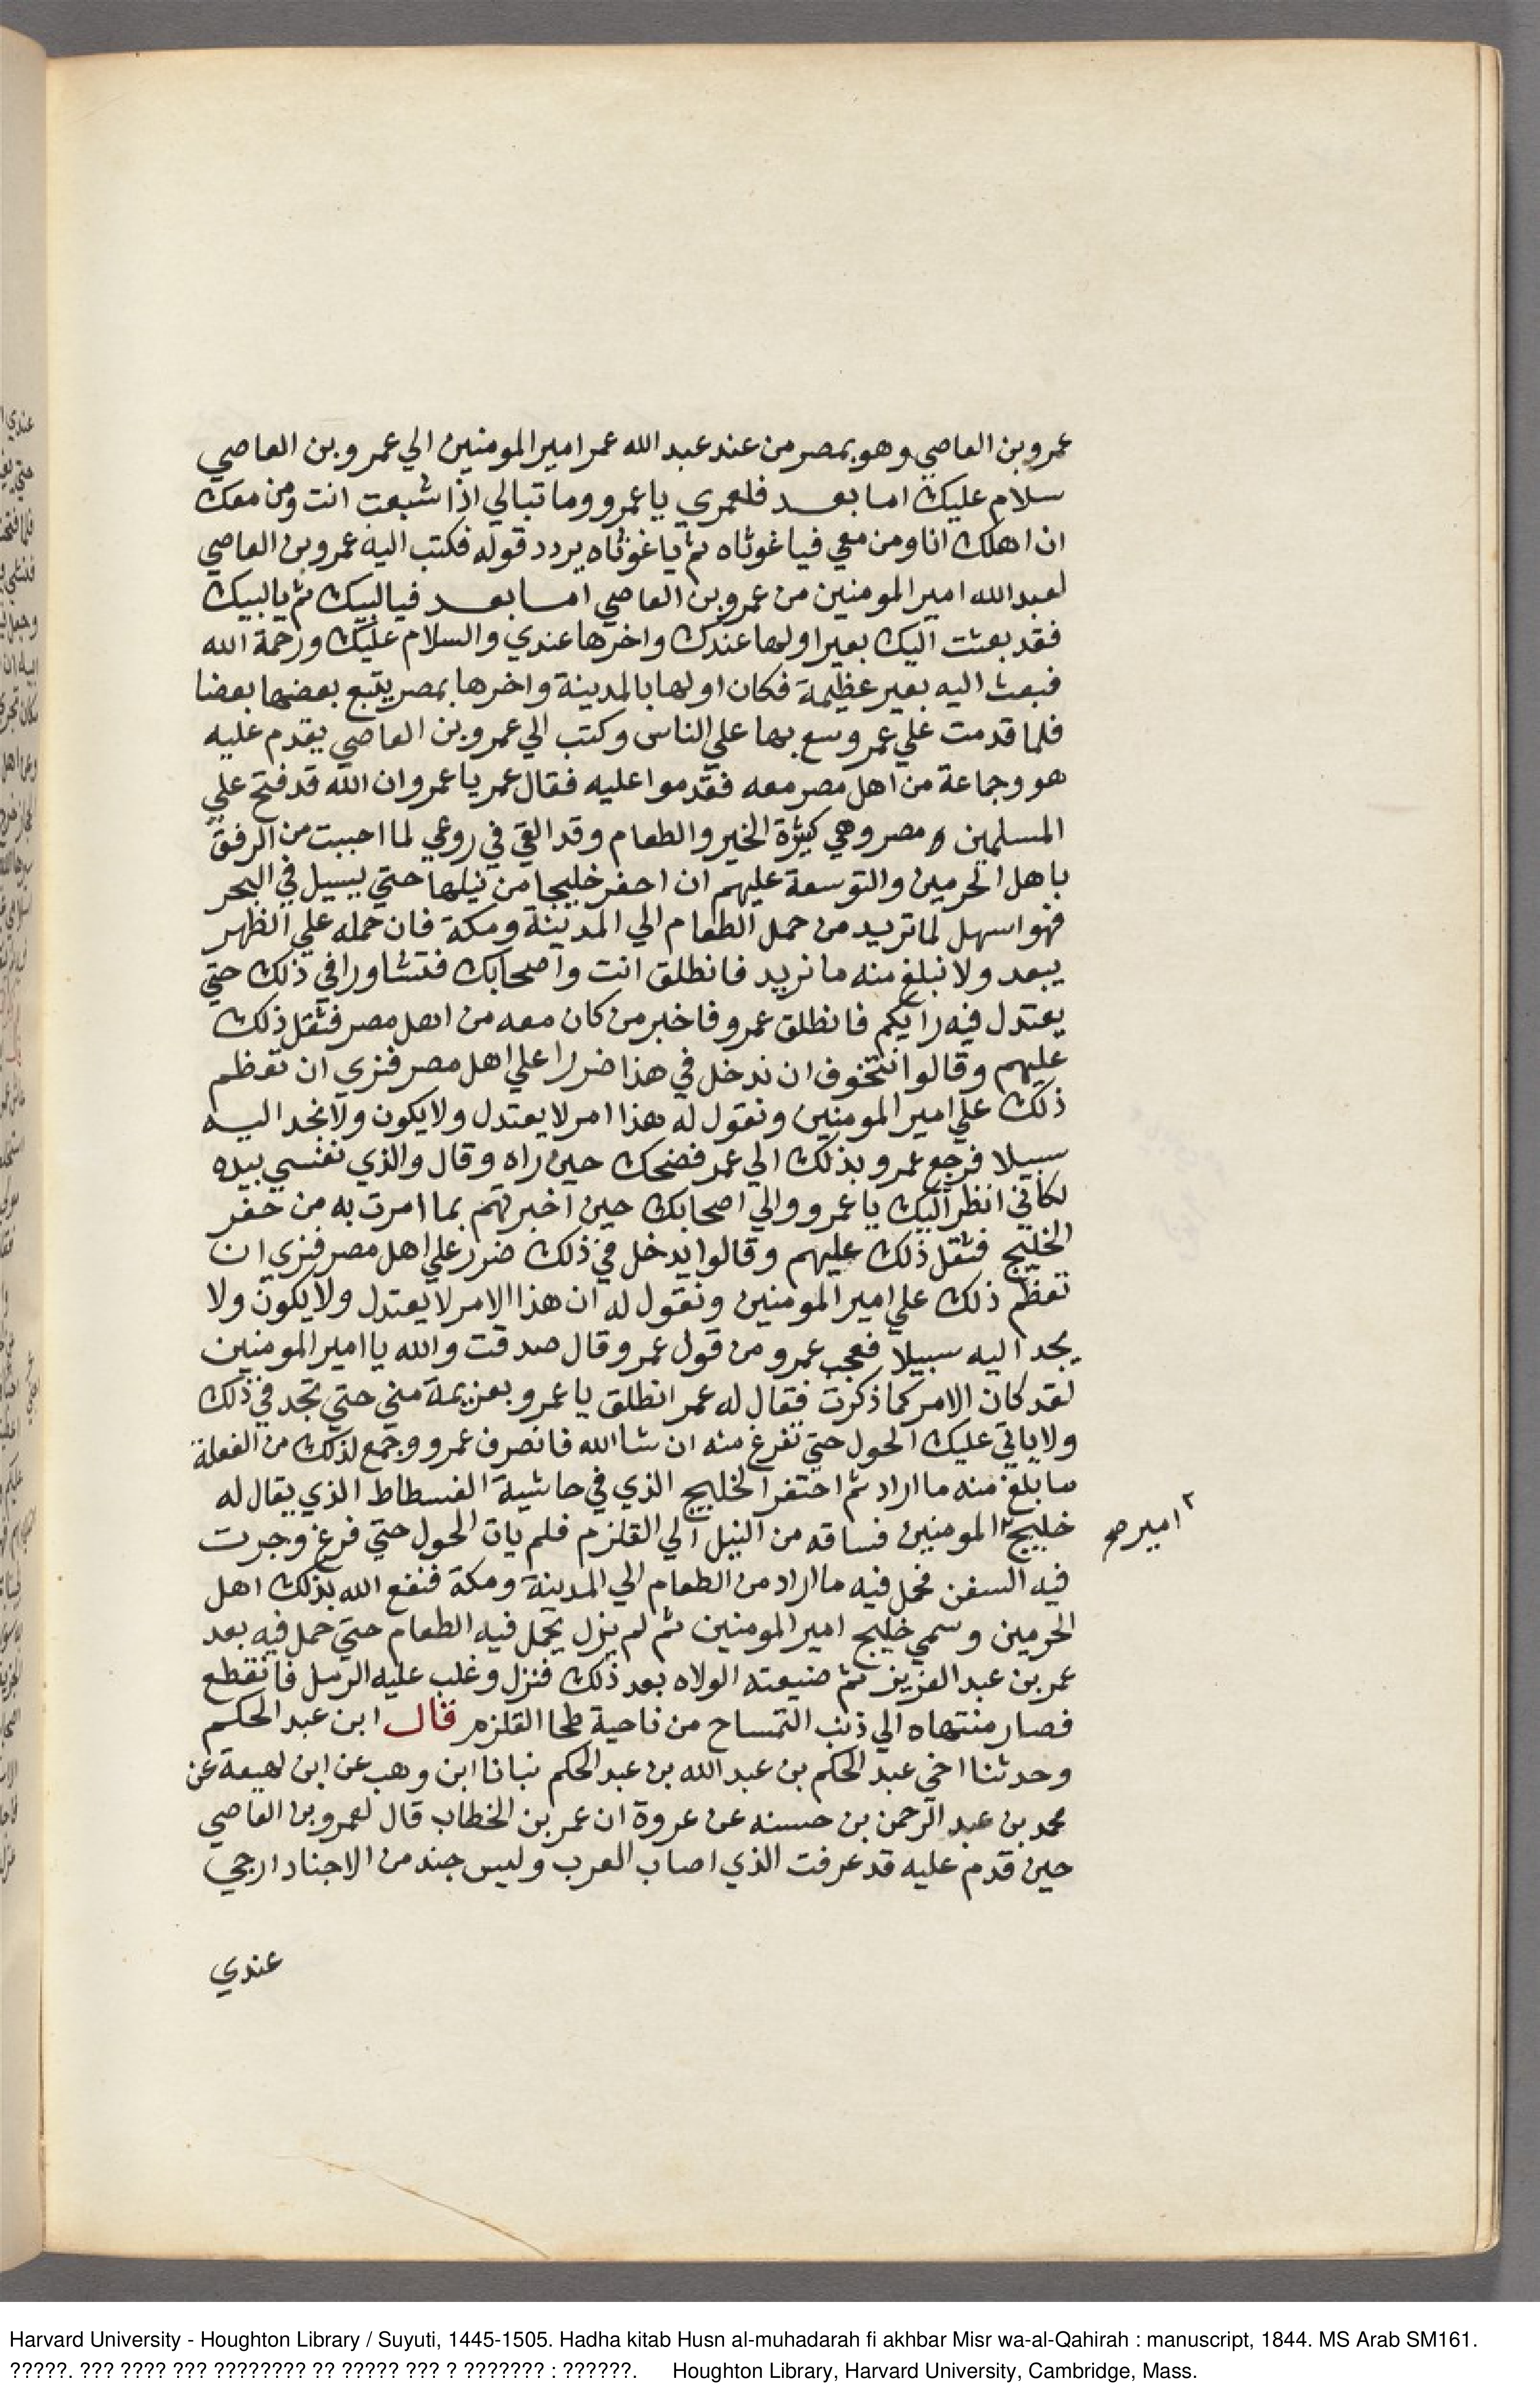 عمرو بن العاصي وهو بمصر من عند عبد الله عمر امير المومنين الي عمرو بن العاصي
سلام عليك اما بعد فلعمري يا عمرو وما تبالي اذا شبعت انت ومن معك
ان اهلك انا ومن معي فيا غوثاه ثم يا غوثاه يردد قوله فكتب اليه عمرو بن العاصي
لعبد الله امير المومنين من عمرو بن العاصي اما بعد فيا لبيك ثم يا لبيك
فقد بعثت اليك بعير اولها عندك واخرها عندي والسلام عليك ورحمة الله
فبعث اليه بعير عظيمة فكان اولها بالمدينة واخرها بمصر يتبع بعضها بعضا
فلما قدمت علي عمر وسع بها علي الناس وكتب الي عمرو بن العاصي يقدم عليه
هو وجماعة من اهل مصر معه فقدموا عليه فقال عمر يا عمرو ان الله قد فتح علي
المسلمين مصر وهي كثيرة الخير والطعام وقد القي في روعي لما احببت من الرفق
باهل الحرمين والتوسعة عليهم ان احفر خليجا من نيلها حتي يسيل في البحر
فهو اسهل لما تريد من حمل الطعام الي المدينة ومكة فان حمله علي الظهر
يبعد ولا نبلغ منه ما نريد فانطلق انت واصحابك فتشاورا في ذلك حتي
يعتدل فيه رايكم فانطلق عمرو فاخبر من كان معه من اهل مصر فثقل ذلك
عليهم وقالوا نتخوف ان ندخل في هذا ضررا علي اهل مصر فنري ان تعظم
ذلك علي امير المومنين ونقول له هذا امر لا يعتدل ولا يكون ولا نجد اليه
سبيلا فرجع عمرو بذلك الي عمر فضحك حين راه وقال والذي نفسي بيده
لكاني انظر اليك يا عمرو والي اصحابك حين اخبرتهم بما امرت به من حفر
الخليج فثقل ذلك عليهم وقالوا يدخل في ذلك ضرر علي اهل مصر فنري ان
تعظم ذلك علي امير المومنين ونقول له ان هذا الامر لا يعتدل ولا يكون ولا
يجد اليه سبيلا فعجب عمرو من قول عمر وقال صدقت والله يا امير المومنين
لقد كان الامر كما ذكرت فقال له عمر انطلق يا عمرو بعزيمة مني حتي تجد في ذلك
ولا ياتي عليك الحول حتي تفرغ منه ان شا الله فانصرف عمرو وجمع لذلك من الفعلة
ما بلغ منه ما اراد ثم احتفر الخليج الذي في حاشية الفسطاط الذي يقال له
خليج ٢ المومنين فساقه من النيل الي القلزم فلم يات الحول حتي فرغ وجرت
٢ امير صح
فيه السفن فحمل فيه ما اراد من الطعام الي المدينة ومكة فنفع الله بذلك اهل
الحرمين وسمي خليج امير المومنين ثم لم يزل يحمل فيه الطعام حتي حمل فيه بعد
عمر بن عبد العزيز ثم ضيعته الولاه بعد ذلك فنزل وغلب عليه الرمل فانقطع
فصار منتهاه الي ذنب التمساح من ناحية طحا القلزم قال ابن عبد الحكم
وحدثنا اخي عبد الحكم بن عبد الله بن عبد الحكم نبانا ابن وهب عن ابن لهيعة عن
محمد بن عبد الرحمن بن حسنه عن عروة ان عمر بن الخطاب قال لعمرو بن العاصي
حين قدم عليه قد عرفت الذي اصاب العرب وليس جند من الاجناد ارجي
عندي
Harvard University - Houghton Library / Suyuti, 1445-1505. Hadha kitab Husn al-muhadarah fi akhbar Misr wa-al-Qahirah : manuscript, 1844. MS Arab SM161.
?????. ??? ???? ??? ???????? ?? ????? ??? ? ??????? : ??????. Houghton Library, Harvard University, Cambridge, Mass.